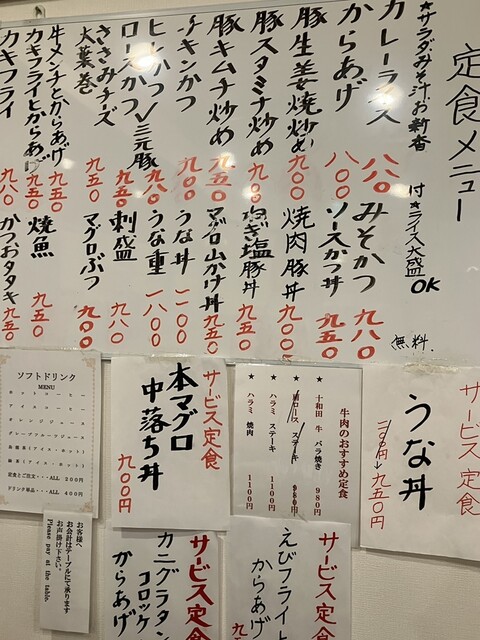 定食メニュー
★サラダみそ汁お新香
付★ライス大盛OK
無料.
カレーライス
八八〇
からあげ
八〇〇
豚生姜焼炒め
九〇〇
豚スタミナ炒め
九〇〇
豚キムチ炒め
九五〇
チキンかつ
九〇〇
ヒレかつ
九八〇
ロースかつ
九五〇
三元豚
ささみチーズ
大葉巻
九五〇
牛メンチとからあげ
九五〇
カキフライとからあげ
九五〇
カキフライ
九八〇
みそかつ
九八〇
ソースかつ丼
九五〇
焼肉豚丼
九〇〇
ねぎ塩豚丼
九五〇
マグロ山かけ丼
九五〇
うな丼
一一〇〇
うな重
一八〇〇
刺盛
九八〇
マグロぶつ
九〇〇
焼魚
九五〇
かつおタタキ
九五〇
サービス定食
うな丼
九五〇円
牛肉のおすすめ定食
★ 十和田 牛 バラ焼き 980円
★ ハラミ ステーキ 1100円
★ ハラミ 焼肉 1100円
サービス定食
本マグロ
中落ち丼
九〇〇円
ソフトドリンク
MENU
ホットコーヒー
アイスコーヒー
オレンジジュース
グレープフルーツジュース
烏龍茶(アイス・ホット)
緑茶(アイス・ホット)
定食とご注文・・・ALL 200円
ドリンク単品・・・ALL 400円
お客様へ
お会計はテーブルにて承ります
お声掛け下さい。
Please pay at the table.
サービス定食
えびフライと
からあげ
サービス定食
カニグラタン
コロッケ
からあげ